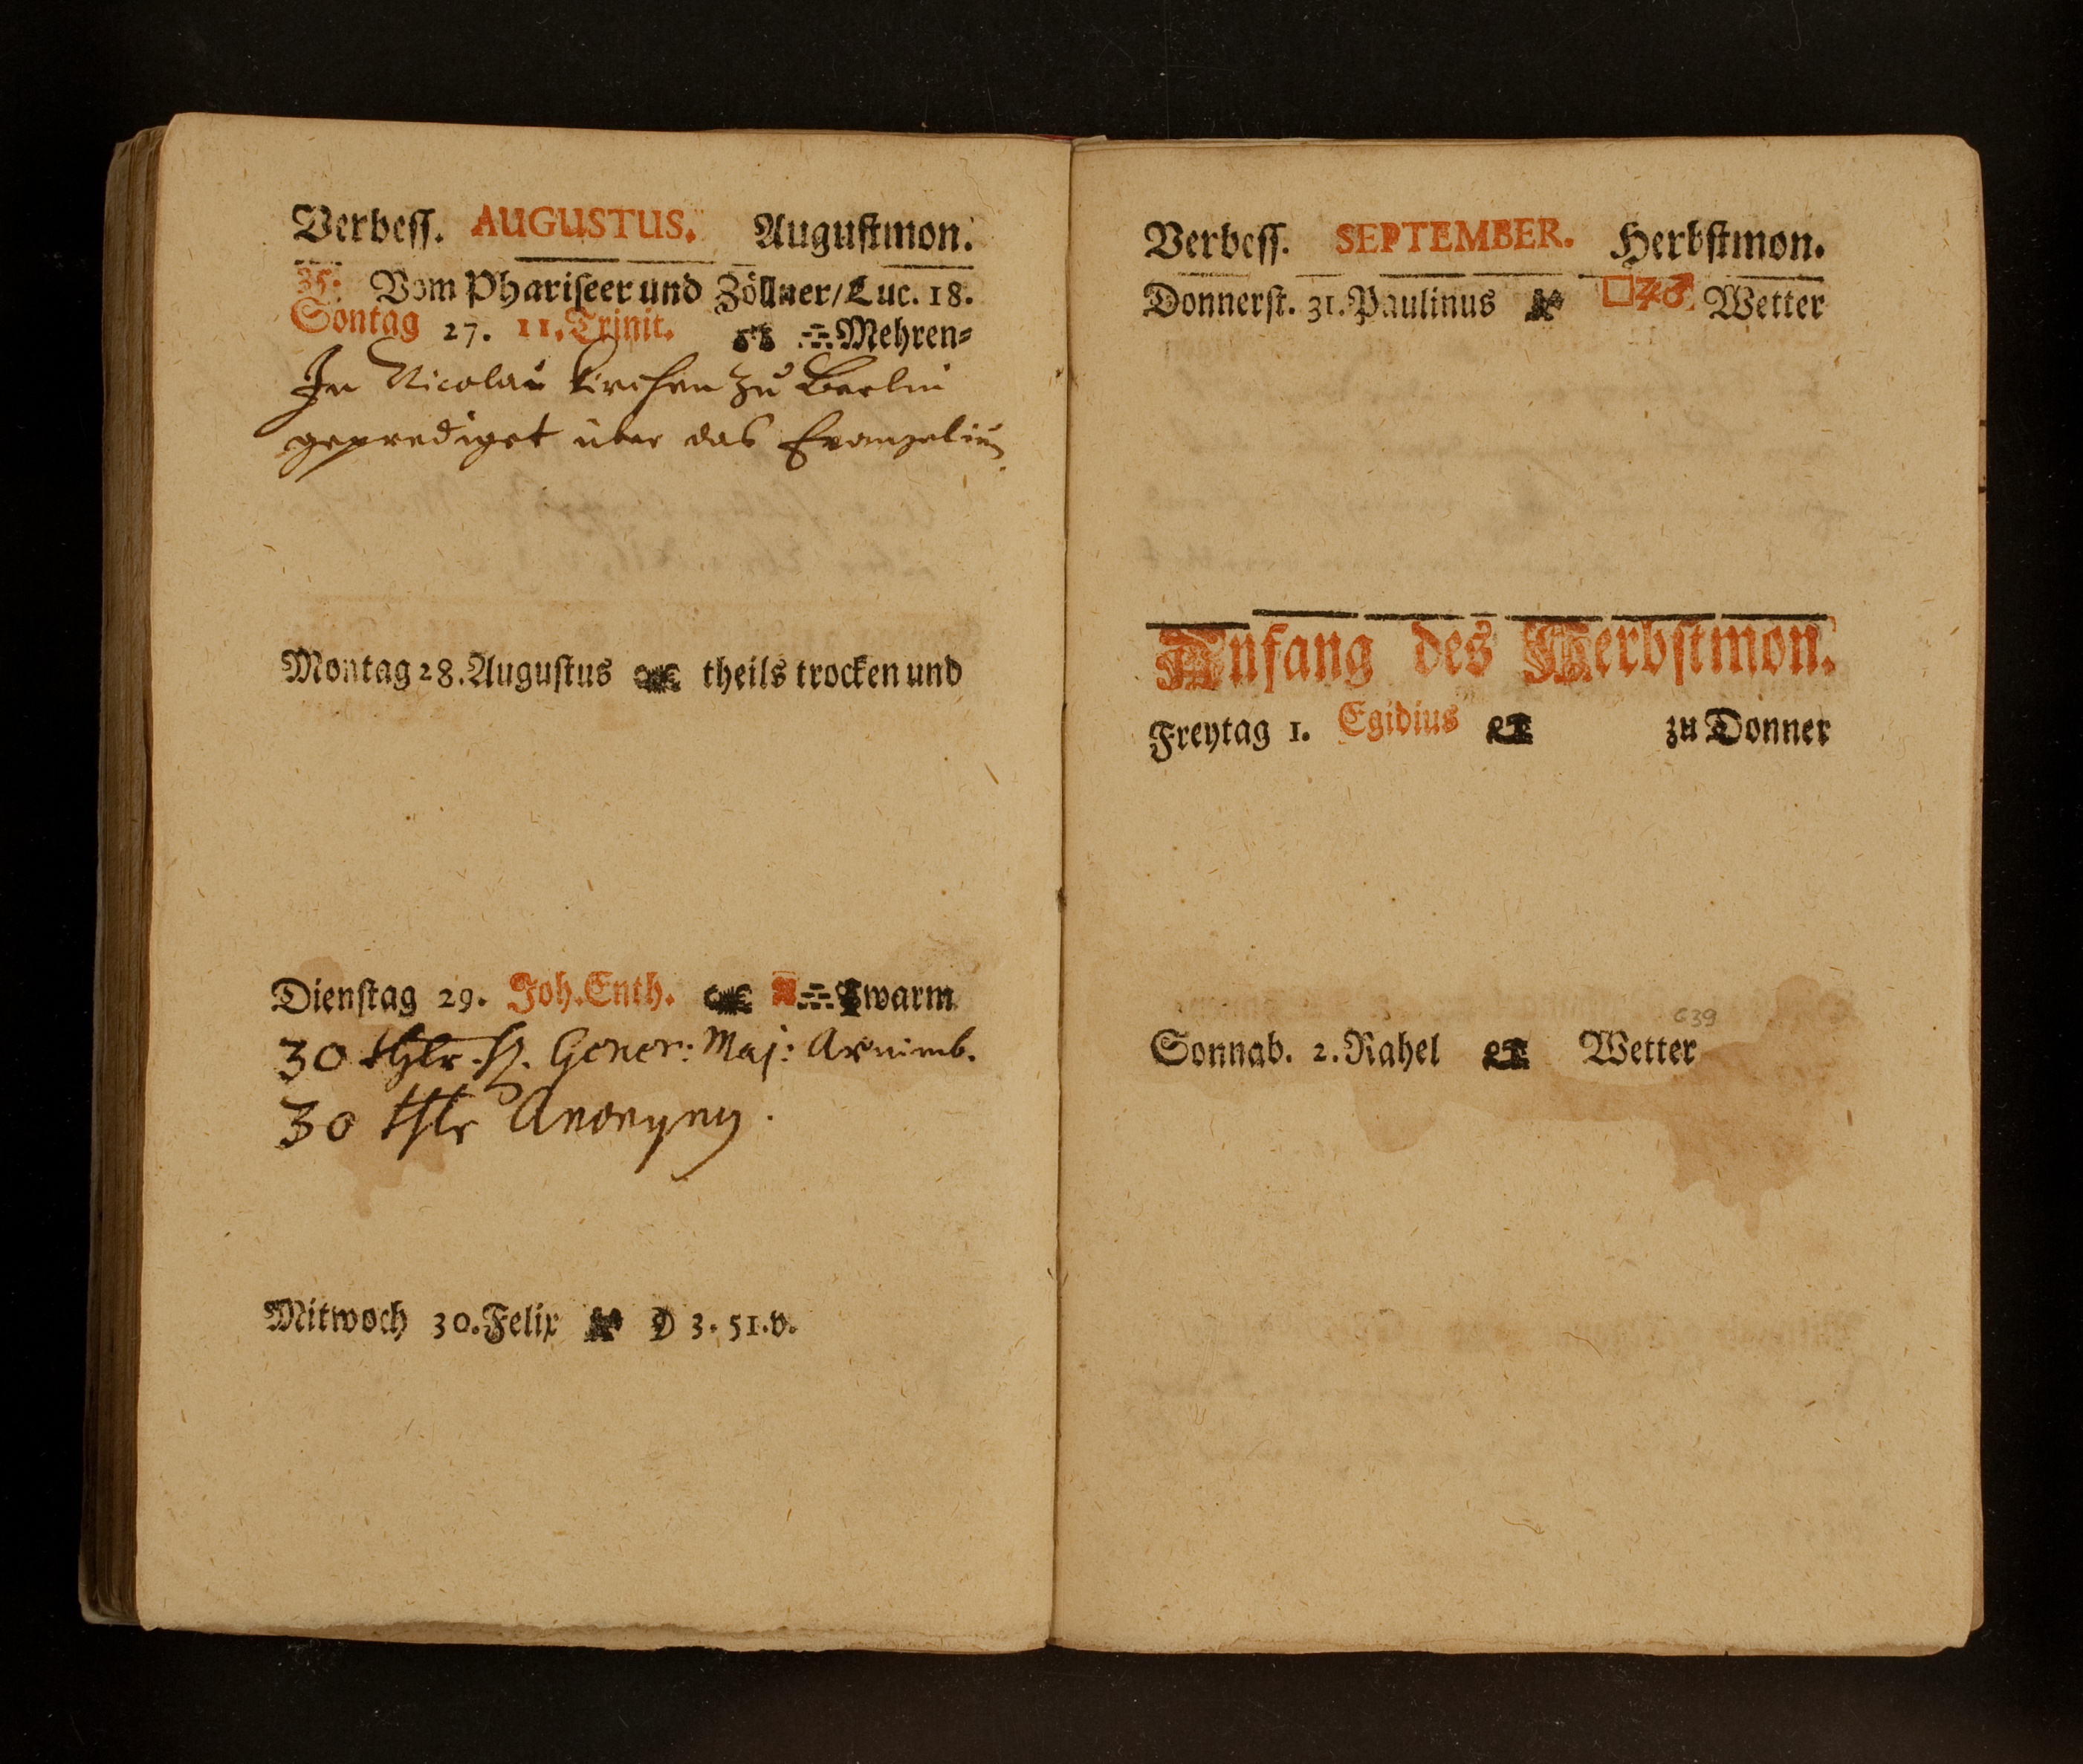 Verbess. AUGUSTUS. Augustmon.
35. Vom Phariseer und Zöllner/Luc. 18.
Sontag 27. 11. Trinit. Mehren=
In Nicolai Kirchen zu Berlin
geprediget über das Evangelium
Montag 28. Augustus theils trocken und
Dienstag 29. Joh. Enth. warm
30 thlr. H. Gener: Maj: Arnimb.
30 thlr Anonym
Mitwoch 30. Felix 3. 51. v.
Verbess. SEPTEMBER. Herbstmon.
Donnerst. 31. Paulinus □♃♂ Wetter
Anfang des Herbstmon.
Freytag 1. Egidius zu Donner
639
Sonnab. 2. Rahel Wetter